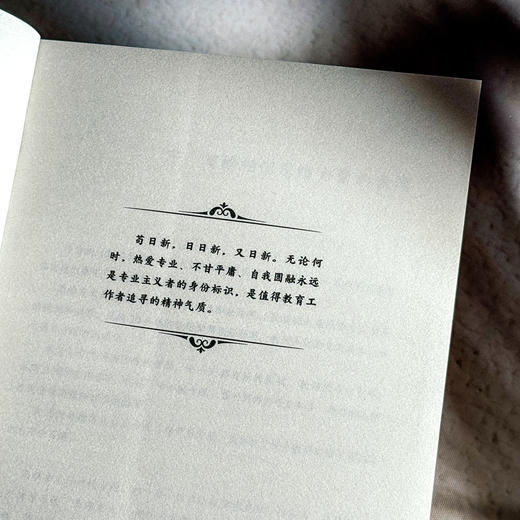 苟日新，日日新，又日新。无论何
时，热爱专业、不甘平庸、自我圆融永远
是专业主义者的身份标识，是值得教育工
作者追寻的精神气质。